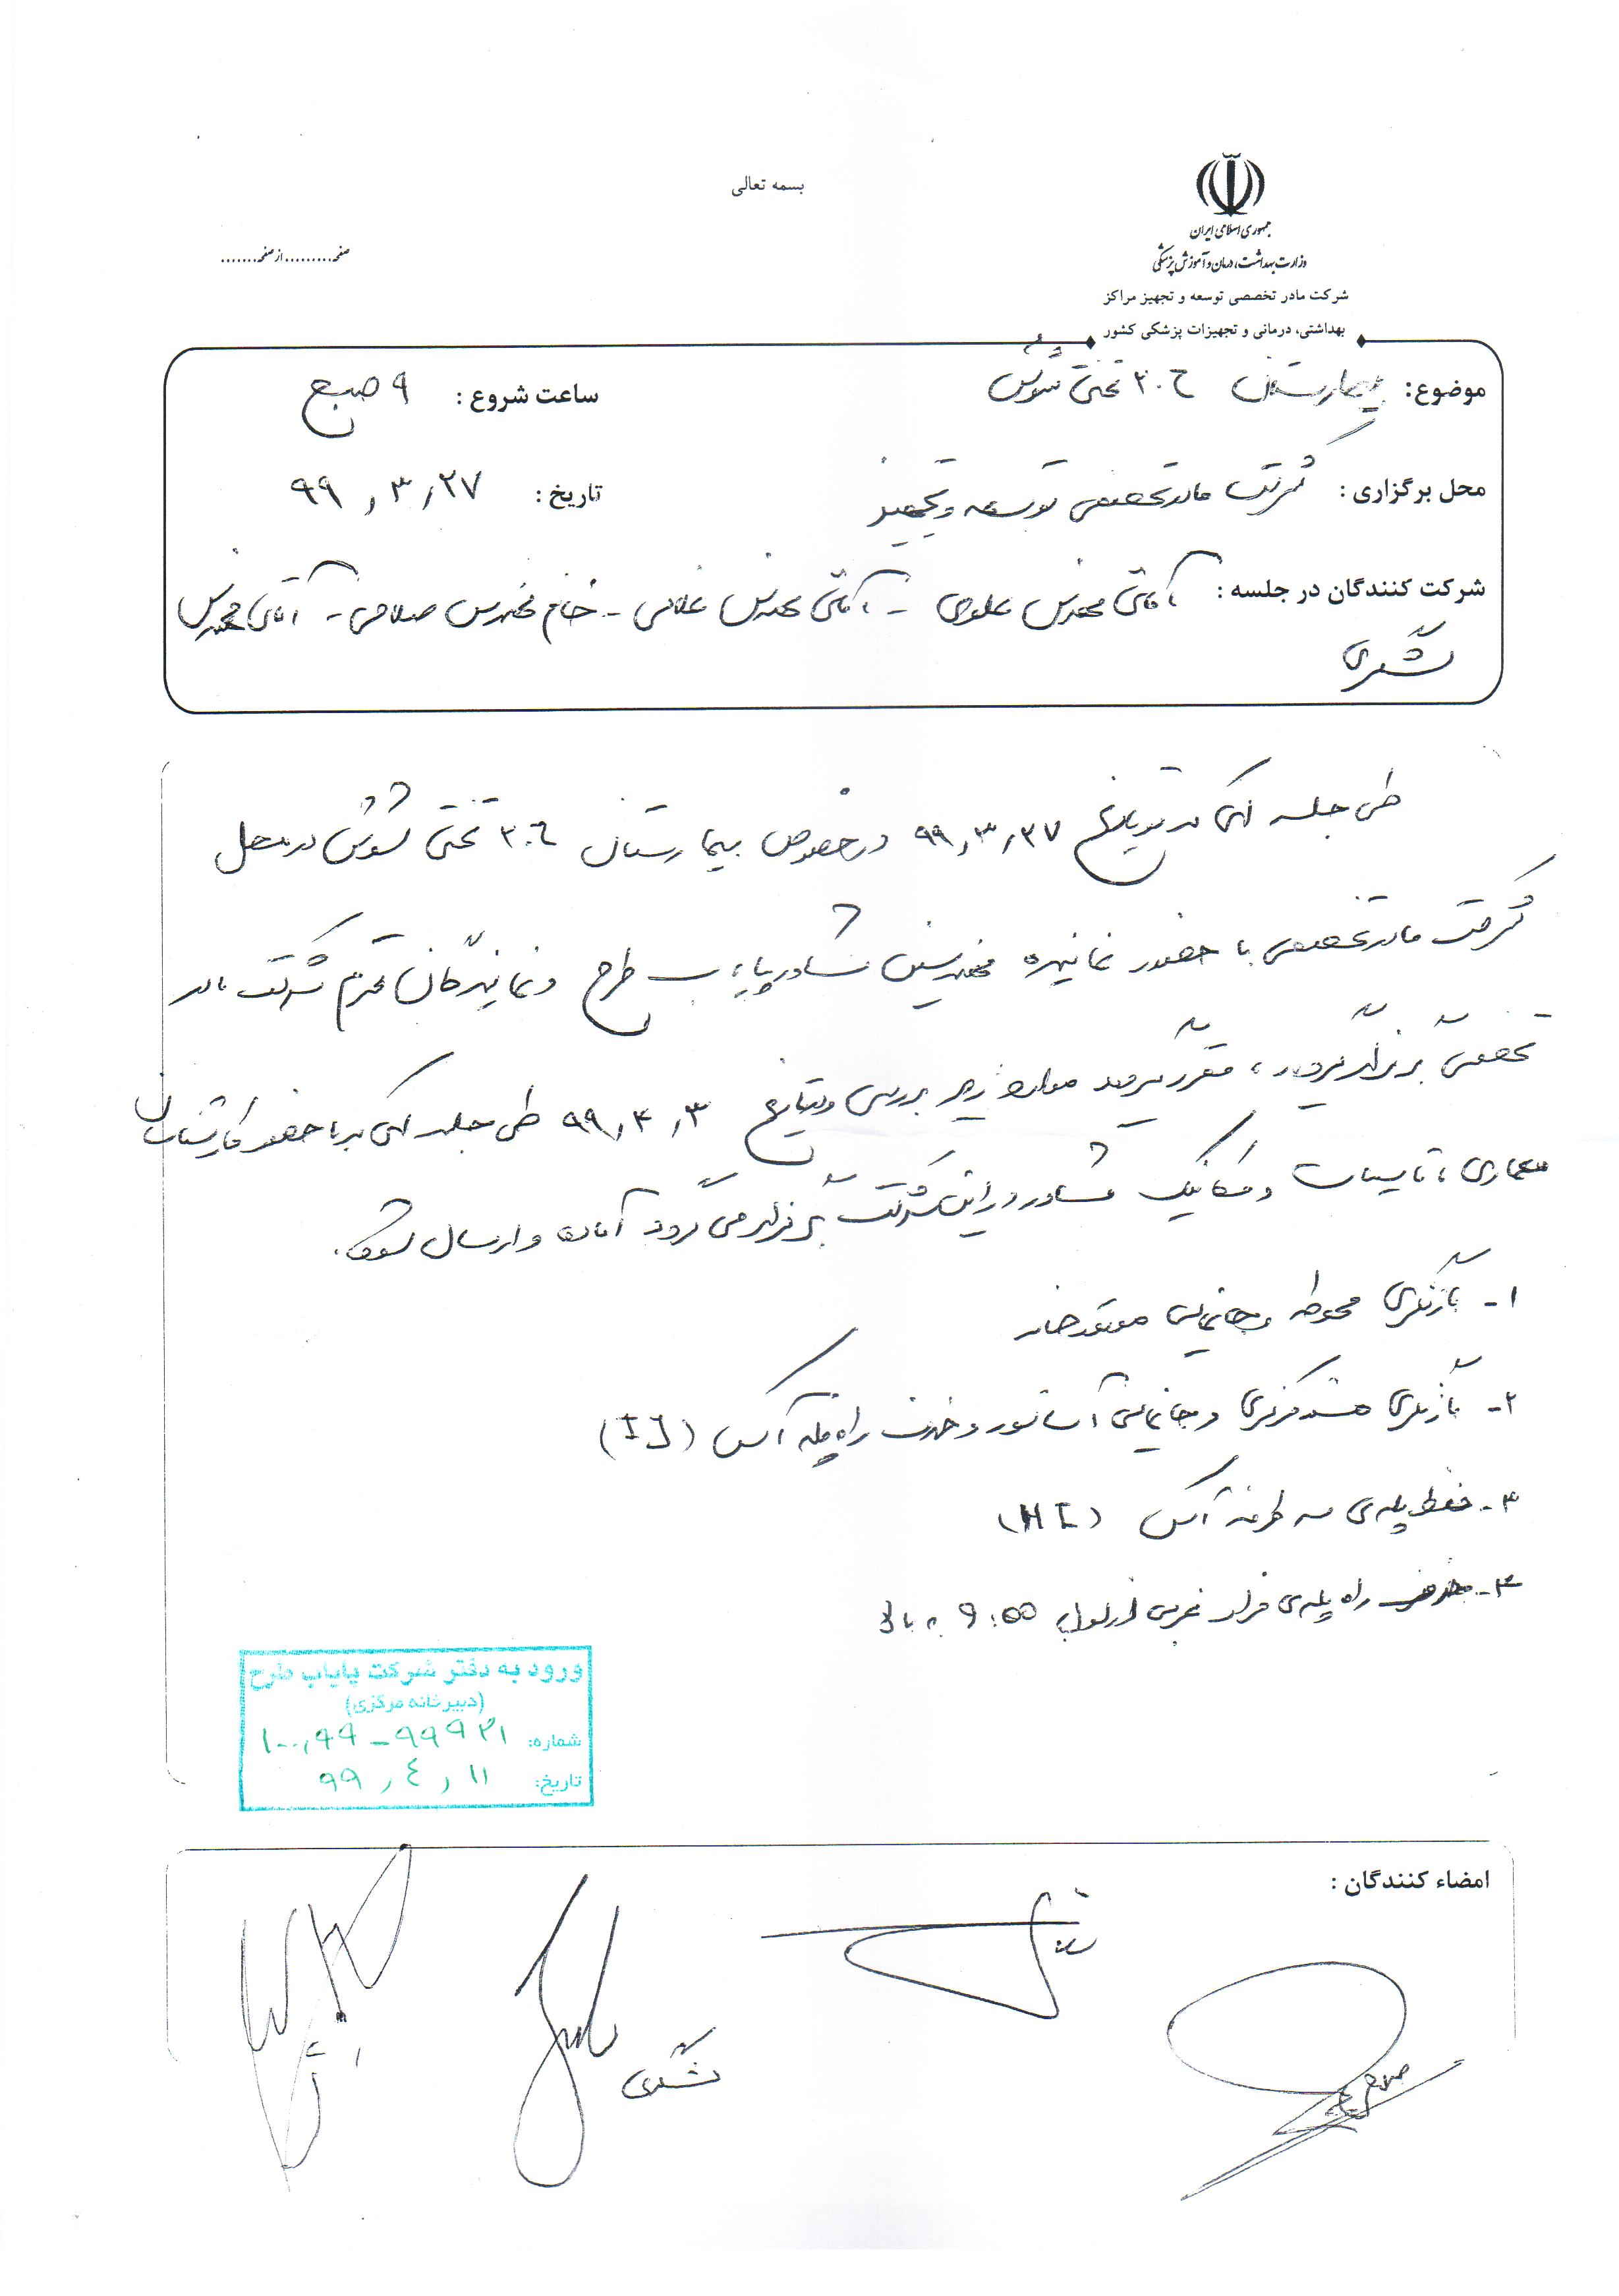 بسمه تعالی
جمهوری اسلامی ایران
وزارت بهداشت، درمان و آموزش پزشکی
شرکت مادر تخصصی توسعه و تجهیز مراکز
بهداشتی، درمانی و تجهیزات پزشکی کشور
صفحه......... از صفحه.......
موضوع: بیمارستان تختی شوش
ساعت شروع : ۹ صبح
محل برگزاری : شرکت مادر تخصصی توسعه و تجهیز
تاریخ : ۹۹,۳,۲۷
شرکت کنندگان در جلسه : آقای مهندس علوی - آقای مهندس غلامی - خانم مهندس صلاحی - آقای مهندس
طی جلسه ای که در تاریخ ۹۹,۳,۲۷ در خصوص بیمارستان تختی شوش در محل
شرکت مادر تخصصی با حضور نماینده مهندسین مشاور پایاب طرح و نمایندگان محترم شرکت مادر
تخصصی برگزار گردید، مقرر گردید موارد زیر بررسی و بتاریخ ۹۹,۴,۳ طی جلسه ای که با حضور کارشناسان
معماری، تاسیسات و مکانیک مشاور در این شرکت برگزار می گردد آماده و ارسال شود.
۱- بازنگری محوطه و جانمایی موتورخانه
۲- بازنگری و جانمایی آسانسور و حذف راه پله آکس (IJ)
۳- حفظ پله ی سه طرفه آکس
۴- حذف راه پله ی فرار غربی از به بالا
ورود به دفتر شرکت پایاب طرح
(دبیرخانه مرکزی)
شماره: ۱۰۰,۹۹-۹۹۹۳۱
تاریخ: ۹۹,۴,۱۱
امضاء کنندگان :